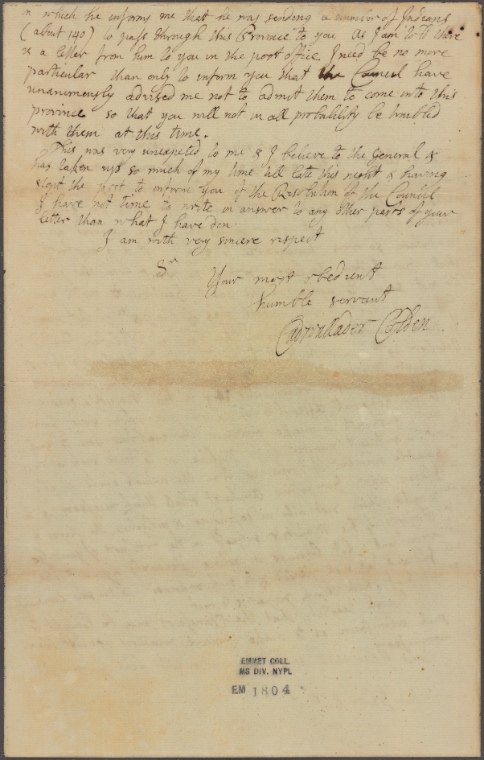 in which he informs me that he was sending a number of Indeans
(about 140) to pass through this Province to you as I am told there
is a letter from him to you in the post office I need be no more
particular than only to inform you that the Council have
unanimously advised me not to admit them to come into this
province so that you will not in all probability be troubled
with them at this time.
This was very unexpected to me & I believe to the General &
has taken up so much of my time all late this night & having
sent the post to inform you of the Resolution of the Council
I have not time to write in answer to any other parts of your
letter than what I have don
I am with very sincere respect
Sr
Your most obedient
humble servant
Cadwallader Colden
EMMET COLL.
MS DIV. NYPL
EM 1804